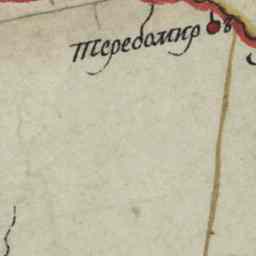 Тередомир